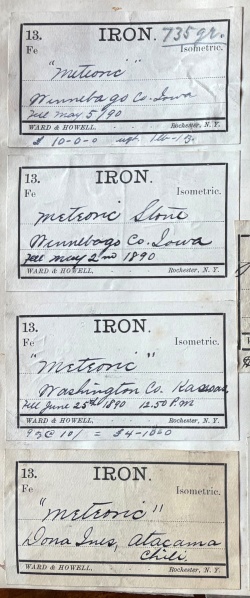 13. IRON. 735 gr.
Fe Isometric.
"Meteoric"
Winnebago Co. Iowa
Fell May 5/90
WARD & HOWELL. Rochester, N. Y.
$ 10-0-0 wgt.
13. IRON.
Fe Isometric.
Meteoric Stone
Winnebago Co. Iowa
Fell May 2nd 1890
WARD & HOWELL. Rochester, N. Y.
13. IRON.
Fe Isometric.
"Meteoric"
Washington Co. Kansas
Fell June 25th 1890 12.50 P.M
WARD & HOWELL. Rochester, N. Y.
13. IRON.
Fe Isometric.
"Meteoric"
Dona Ines, Atacama
Chili
WARD & HOWELL. Rochester, N. Y.